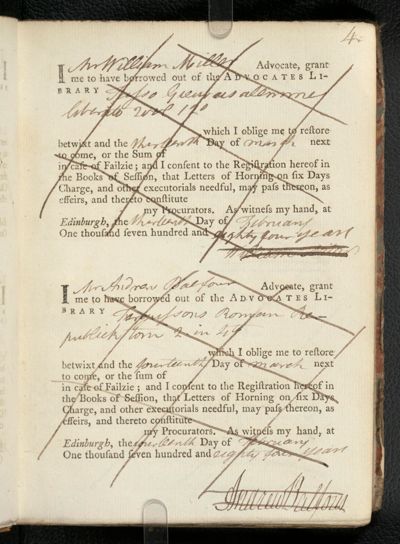 4.
I Mr William Miller Advocate, grant
me to have borrowed out of the ADVOCATES LI-
BRARY Tasso Gierusalemme
liberata 2 vol 12o
which I oblige me to reſtore
betwixt and the thirteenth Day of march next
to come, or the Sum of
in caſe of Failzie; and I conſent to the Regiſtration hereof in
the Books of Seſſion, that Letters of Horning on ſix Days
Charge, and other executorials needful, may paſs thereon, as
effeirs, and thereto conſtitute
my Procurators. As witneſs my hand, at
Edinburgh, the thirteenth Day of February
One thouſand ſeven hundred and eighty four years
William Miller
I Mr Andrew Balfour Advocate, grant
me to have borrowed out of the ADVOCATES LI-
BRARY Fergussons Roman Re-
publick tom 2 in 4o
which I oblige me to reſtore
betwixt and the fourteenth Day of march next
to come, or the ſum of
in caſe of Failzie; and I conſent to the Regiſtration hereof in
the Books of Seſſion, that Letters of Horning on ſix Days
Charge, and other executorials needful, may paſs thereon, as
effeirs, and thereto conſtitute
my Procurators. As witneſs my hand, at
Edinburgh, the fourteenth Day of February
One thouſand ſeven hundred and eighty four years
Andrew Balfour